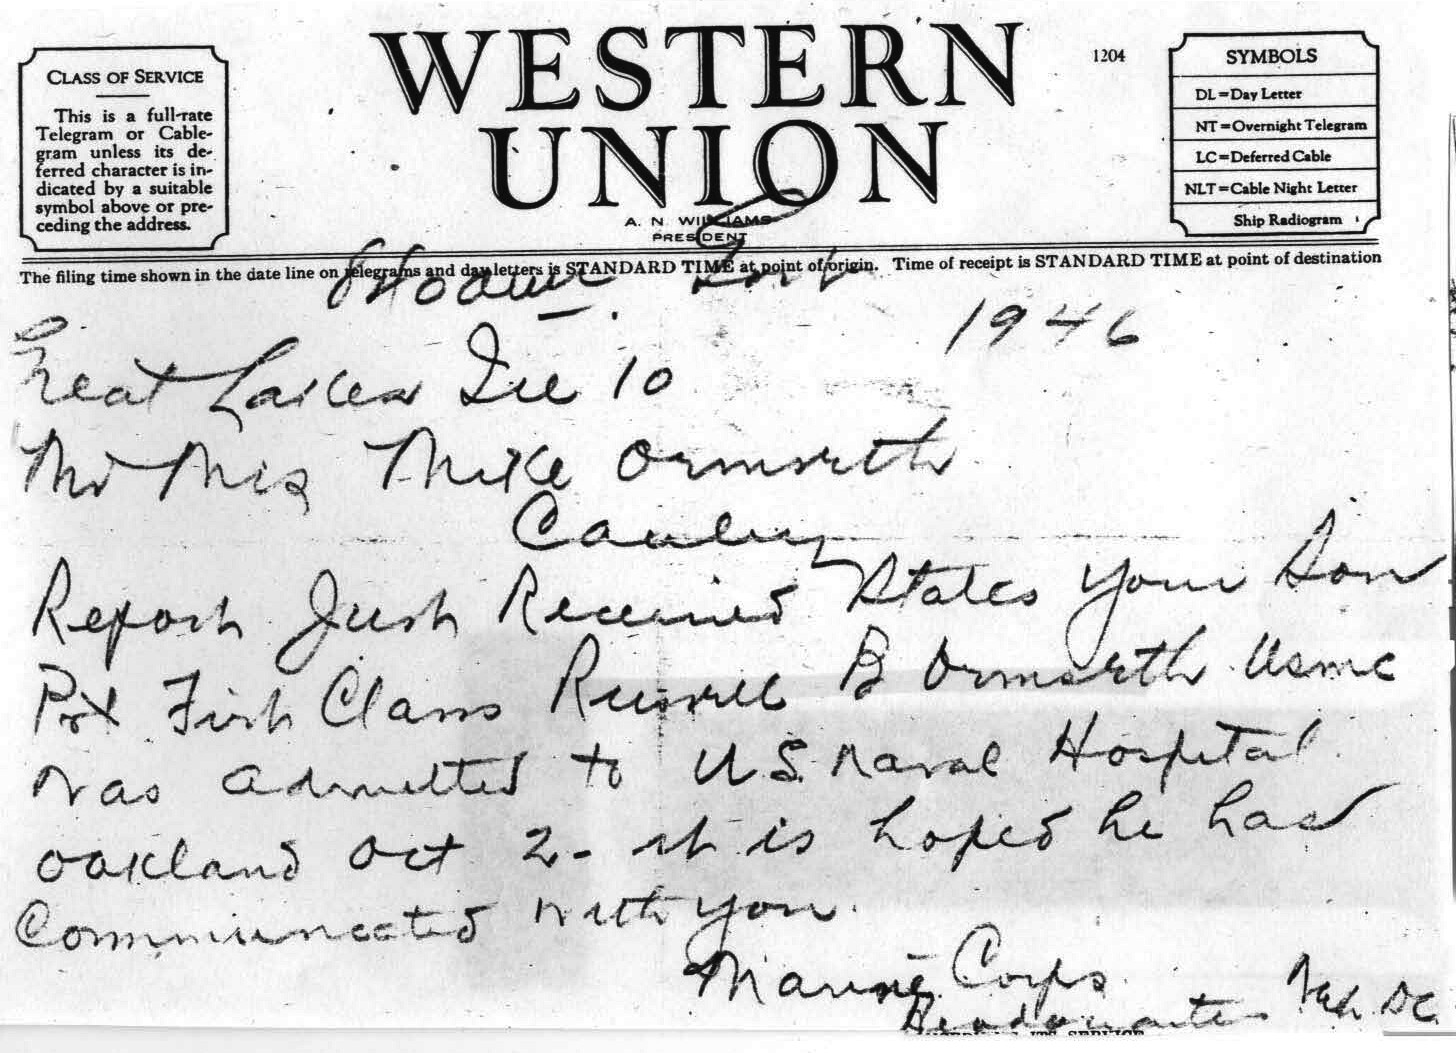 CLASS OF SERVICE
This is a full-rate
Telegram or Cable-
gram unless its de-
ferred character is in-
dicated by a suitable
symbol above or pre-
ceding the address.
WESTERN
UNION
A. N. WILLIAMS
PRESIDENT
1204
SYMBOLS
DL=Day Letter
NT=Overnight Telegram
LC=Deferred Cable
NLT=Cable Night Letter
Ship Radiogram
The filing time shown in the date line on telegrams and day letters is STANDARD TIME at point of origin. Time of receipt is STANDARD TIME at point of destination
1946
Great Lakes Ill 10
Mr Mrs Mike Ormsreth
Report Just Received States your Son
Pvt First Class Russell B Ormsreth USMC
Was admitted to U S. Naval Hospital
Oakland Oct 2 - it is hoped he has
Communicated with you.
Marine Corps
Headquarters Wash. DC.